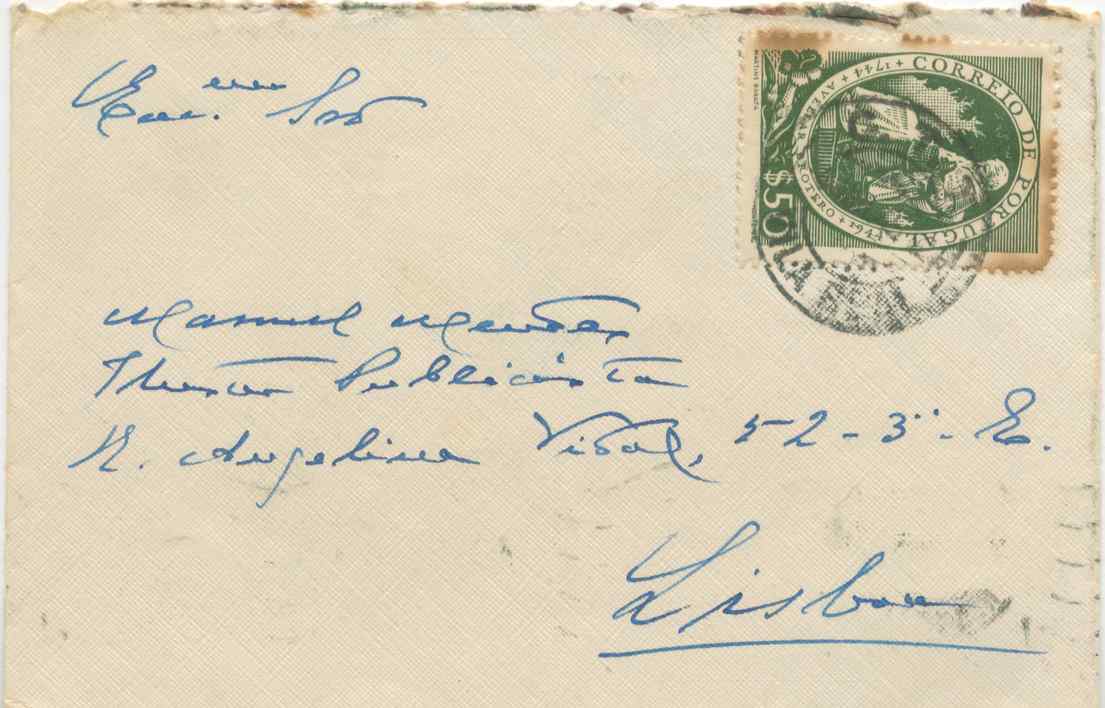 Exc.mo Snr
Manuel Mendes
Ilustre Publicista
R. Angelina Vidal, 52-3º-E.
Lisboa
CORREIO DE PORTUGAL
1744 + AVELAR BROTERO + 1944
$50
MARTINS BARATA